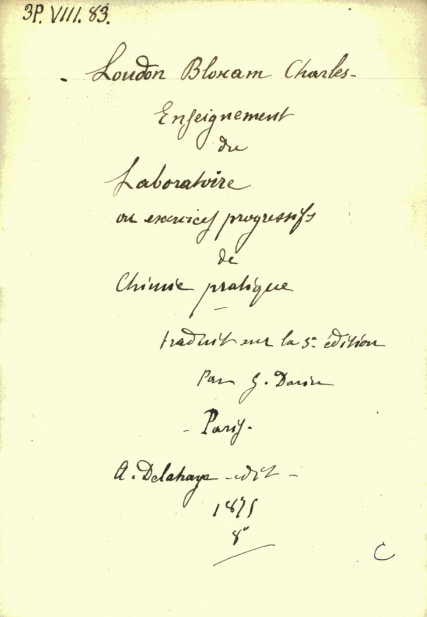 3P. VIII. 83.
Loudon Bloxam Charles-
Enseignement
du
Laboratoire
ou exercices progressifs
de
Chimie pratique
traduit sur la 3e édition
Par G. Darin
- Paris -
A. Delahaye - édit -
1875
8°
C